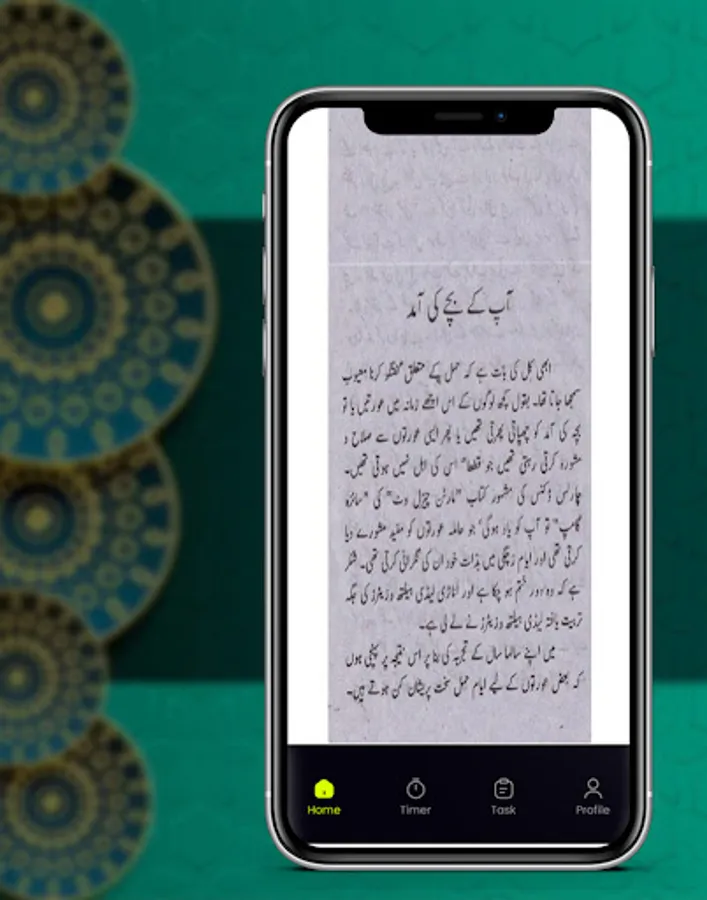 آپ کے بچے کی آمد
ابھی کل کی بات ہے کہ حمل کے متعلق گفتگو کرنا معیوب
سمجھا جاتا تھا۔ بقول کچھ لوگوں کے اس اچھے زمانہ میں عورتیں یا تو
بچہ کی آمد کو چھپاتی پھرتی تھیں یا پھر ایسی عورتوں سے صلاح و
مشورہ کرتی رہتی تھیں جو قطعاً اس کی اہل نہیں ہوتی تھیں۔
چارلس ڈکنس کی مشہور کتاب "مارٹن چیزل وٹ" کی "سائرہ
گامپ" تو آپ کو یاد ہوگی' جو حاملہ عورتوں کو مفید مشورے دیا
کرتی تھی اور ایام زچگی میں بذات خود ان کی نگرانی کرتی تھی۔ شکر
ہے کہ وہ دور ختم ہو چکا ہے اور اناڑی لیڈی ہیلتھ وزیٹرز کی جگہ
تربیت یافتہ لیڈی ہیلتھ وزیٹرز نے لے لی ہے۔
میں اپنے سالہا سال کے تجربہ کی بنا پر اس نتیجہ پر پہنچی ہوں
کہ بعض عورتوں کے لیے ایام حمل سخت پریشان کن ہوتے ہیں۔
Home Timer Task Profile